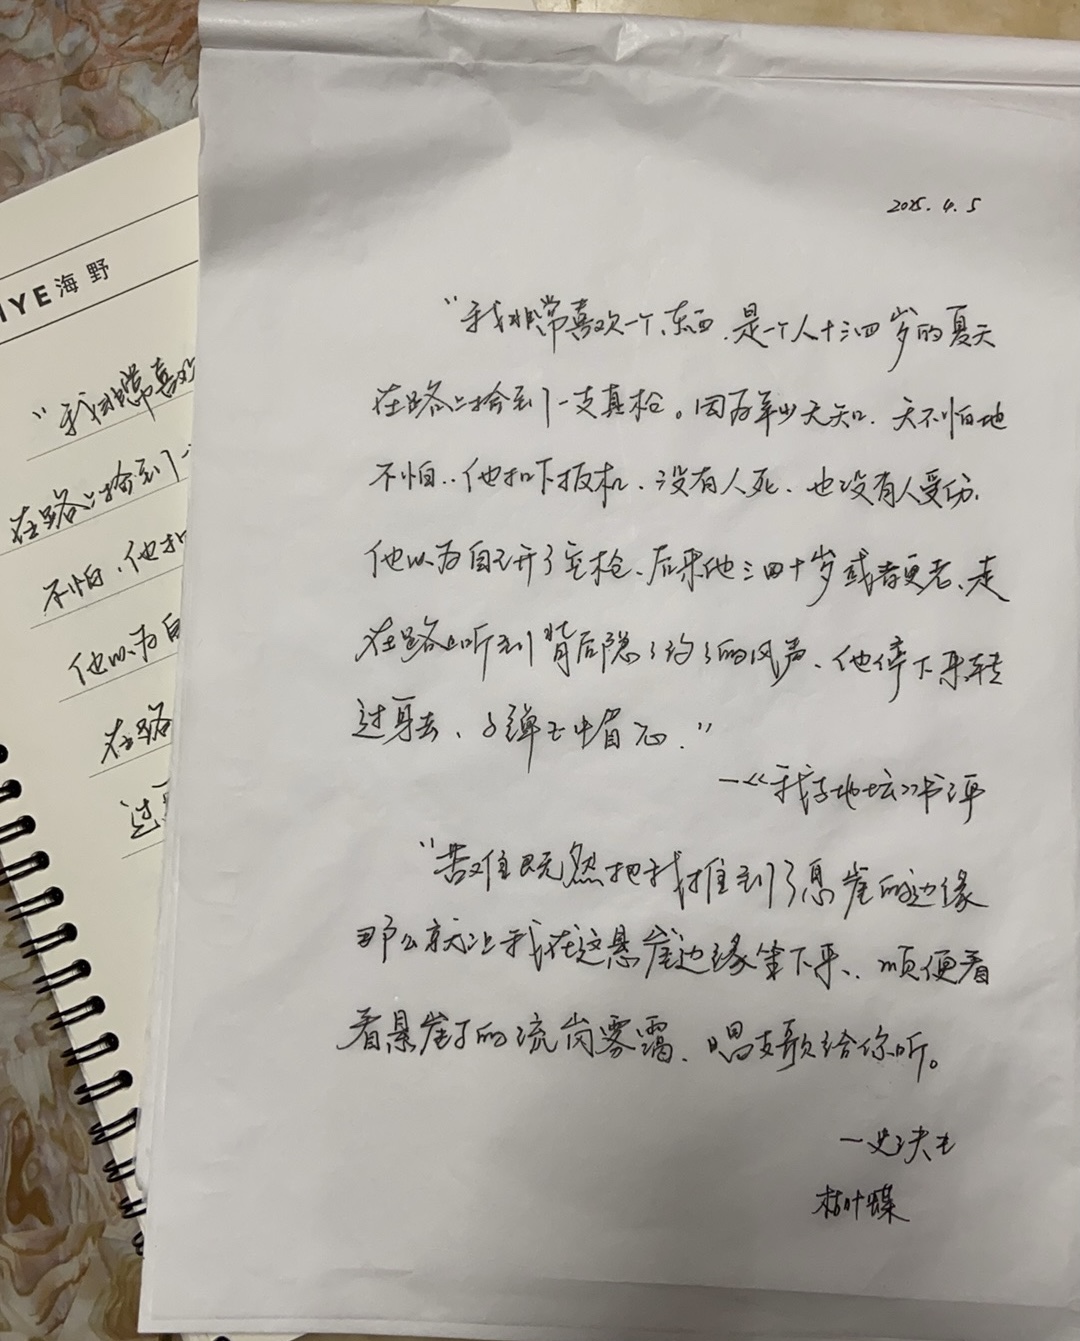 IYE海野
"我非常喜欢
在路上捡到了一
不怕，他扣
他以为自
在路
过
2025.4.5
"我非常喜欢一个东西，是一个人十三四岁的夏天
在路上捡到了一支真枪。因为年少无知，天不怕地
不怕，他扣下扳机，没有人死，也没有人受伤，
他以为自己开了空枪、后来他三四十岁或者更老、走
在路上听到背后隐隐约约的风声、他停下来转
过身去、子弹正中眉心."
—《我与地坛》书评
"苦难既然把我推到了悬崖的边缘
那么就让我在这悬崖边缘坐下来、顺便看
看悬崖下的流岚雾霭、唱支歌给你听。
—史铁生
枯叶蝶